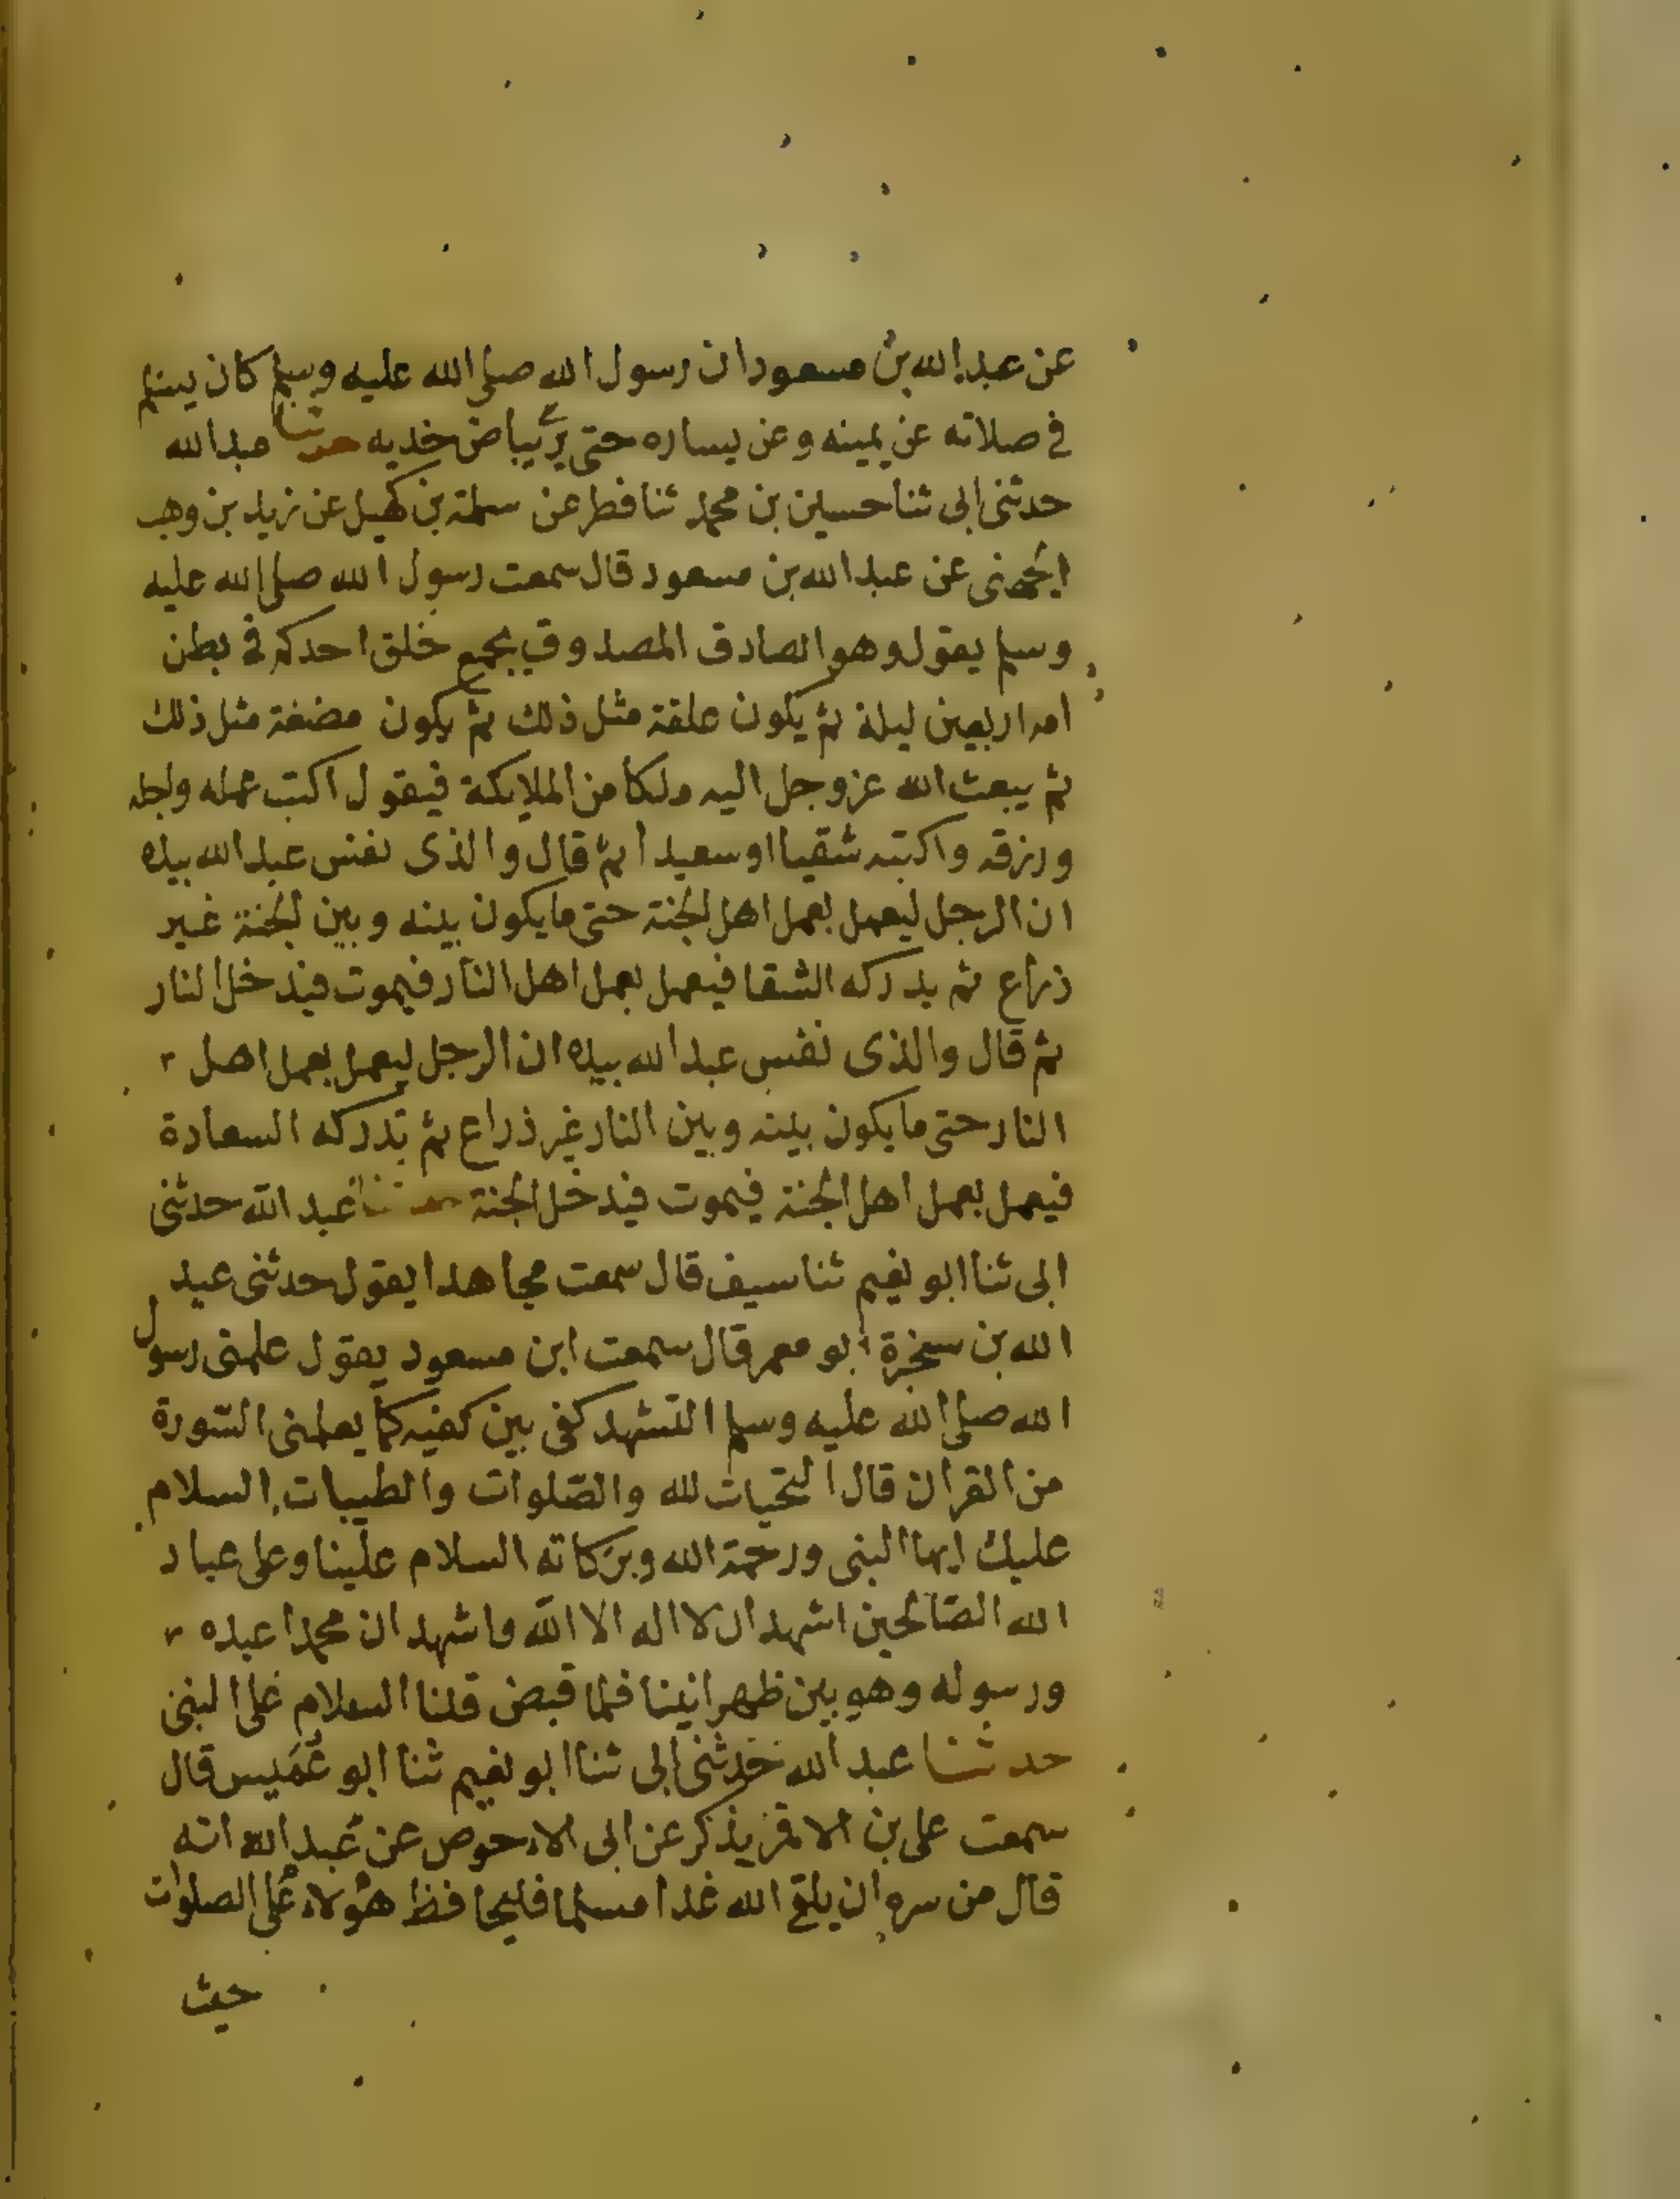 عن عبد الله بن مسعود ان رسول الله صلى الله عليه وسلم كان يسلم
في صلاته عن يمينه وعن يساره حتى يرى بياض خديه حدثنا عبد الله
حدثنى ابى ثنا حسين بن محمد ثنا فطر عن سلمة بن كهيل عن زيد بن وهب
الجهنى عن عبد الله بن مسعود قال سمعت رسول الله صلى الله عليه
وسلم يقول وهو الصادق المصدوق يجمع خلق احدكم في بطن
امه اربعين ليلة ثم يكون علقة مثل ذلك ثم يكون مضغة مثل ذلك
ثم يبعث الله عز وجل اليه ملكا من الملايكة فيقول اكتب عمله واجله
ورزقه واكتبه شقيا او سعيدا ثم قال والذى نفس عبد الله بيده
ان الرجل ليعمل بعمل اهل الجنة حتى ما يكون بينه وبين الجنة غير
ذراع ثم يدركه الشقا فيعمل بعمل اهل النار فيموت فيدخل النار
ثم قال والذى نفس عبد الله بيده ان الرجل ليعمل بعمل اهل
النار حتى ما يكون بينه وبين النار غير ذراع ثم تدركه السعادة
فيعمل بعمل اهل الجنة فيموت فيدخل الجنة حدثنا عبد الله حدثنى
ابى ثنا ابو نعيم ثنا سيف قال سمعت مجاهدا يقول حدثنى عبد
الله بن سخبرة ابو معمر قال سمعت ابن مسعود يقول علمنى رسول
الله صلى الله عليه وسلم التشهد كفى بين كفيه كما يعلمنى السّورة
من القران قال التحيات لله والصّلوات والطيبات السلام
عليك ايها النبى ورحمة الله وبركاته السلام علينا وعلى عباد
الله الصّالحين اشهد ان لا اله الا الله واشهد ان محمدا عبده
ورسوله وهو بين ظهرانينا فلما قبض قلنا السلام على النبى
حدثنا عبد الله حدثنى ابى ثنا ابو نعيم ثنا ابو عُمَيس قال
سمعت على بن الاقمر يذكر عن ابى الاحوص عن عبد الله انه
قال من سره ان يلقى الله غدا مسلما فليحافظ هؤلاء على الصلوات
حيث